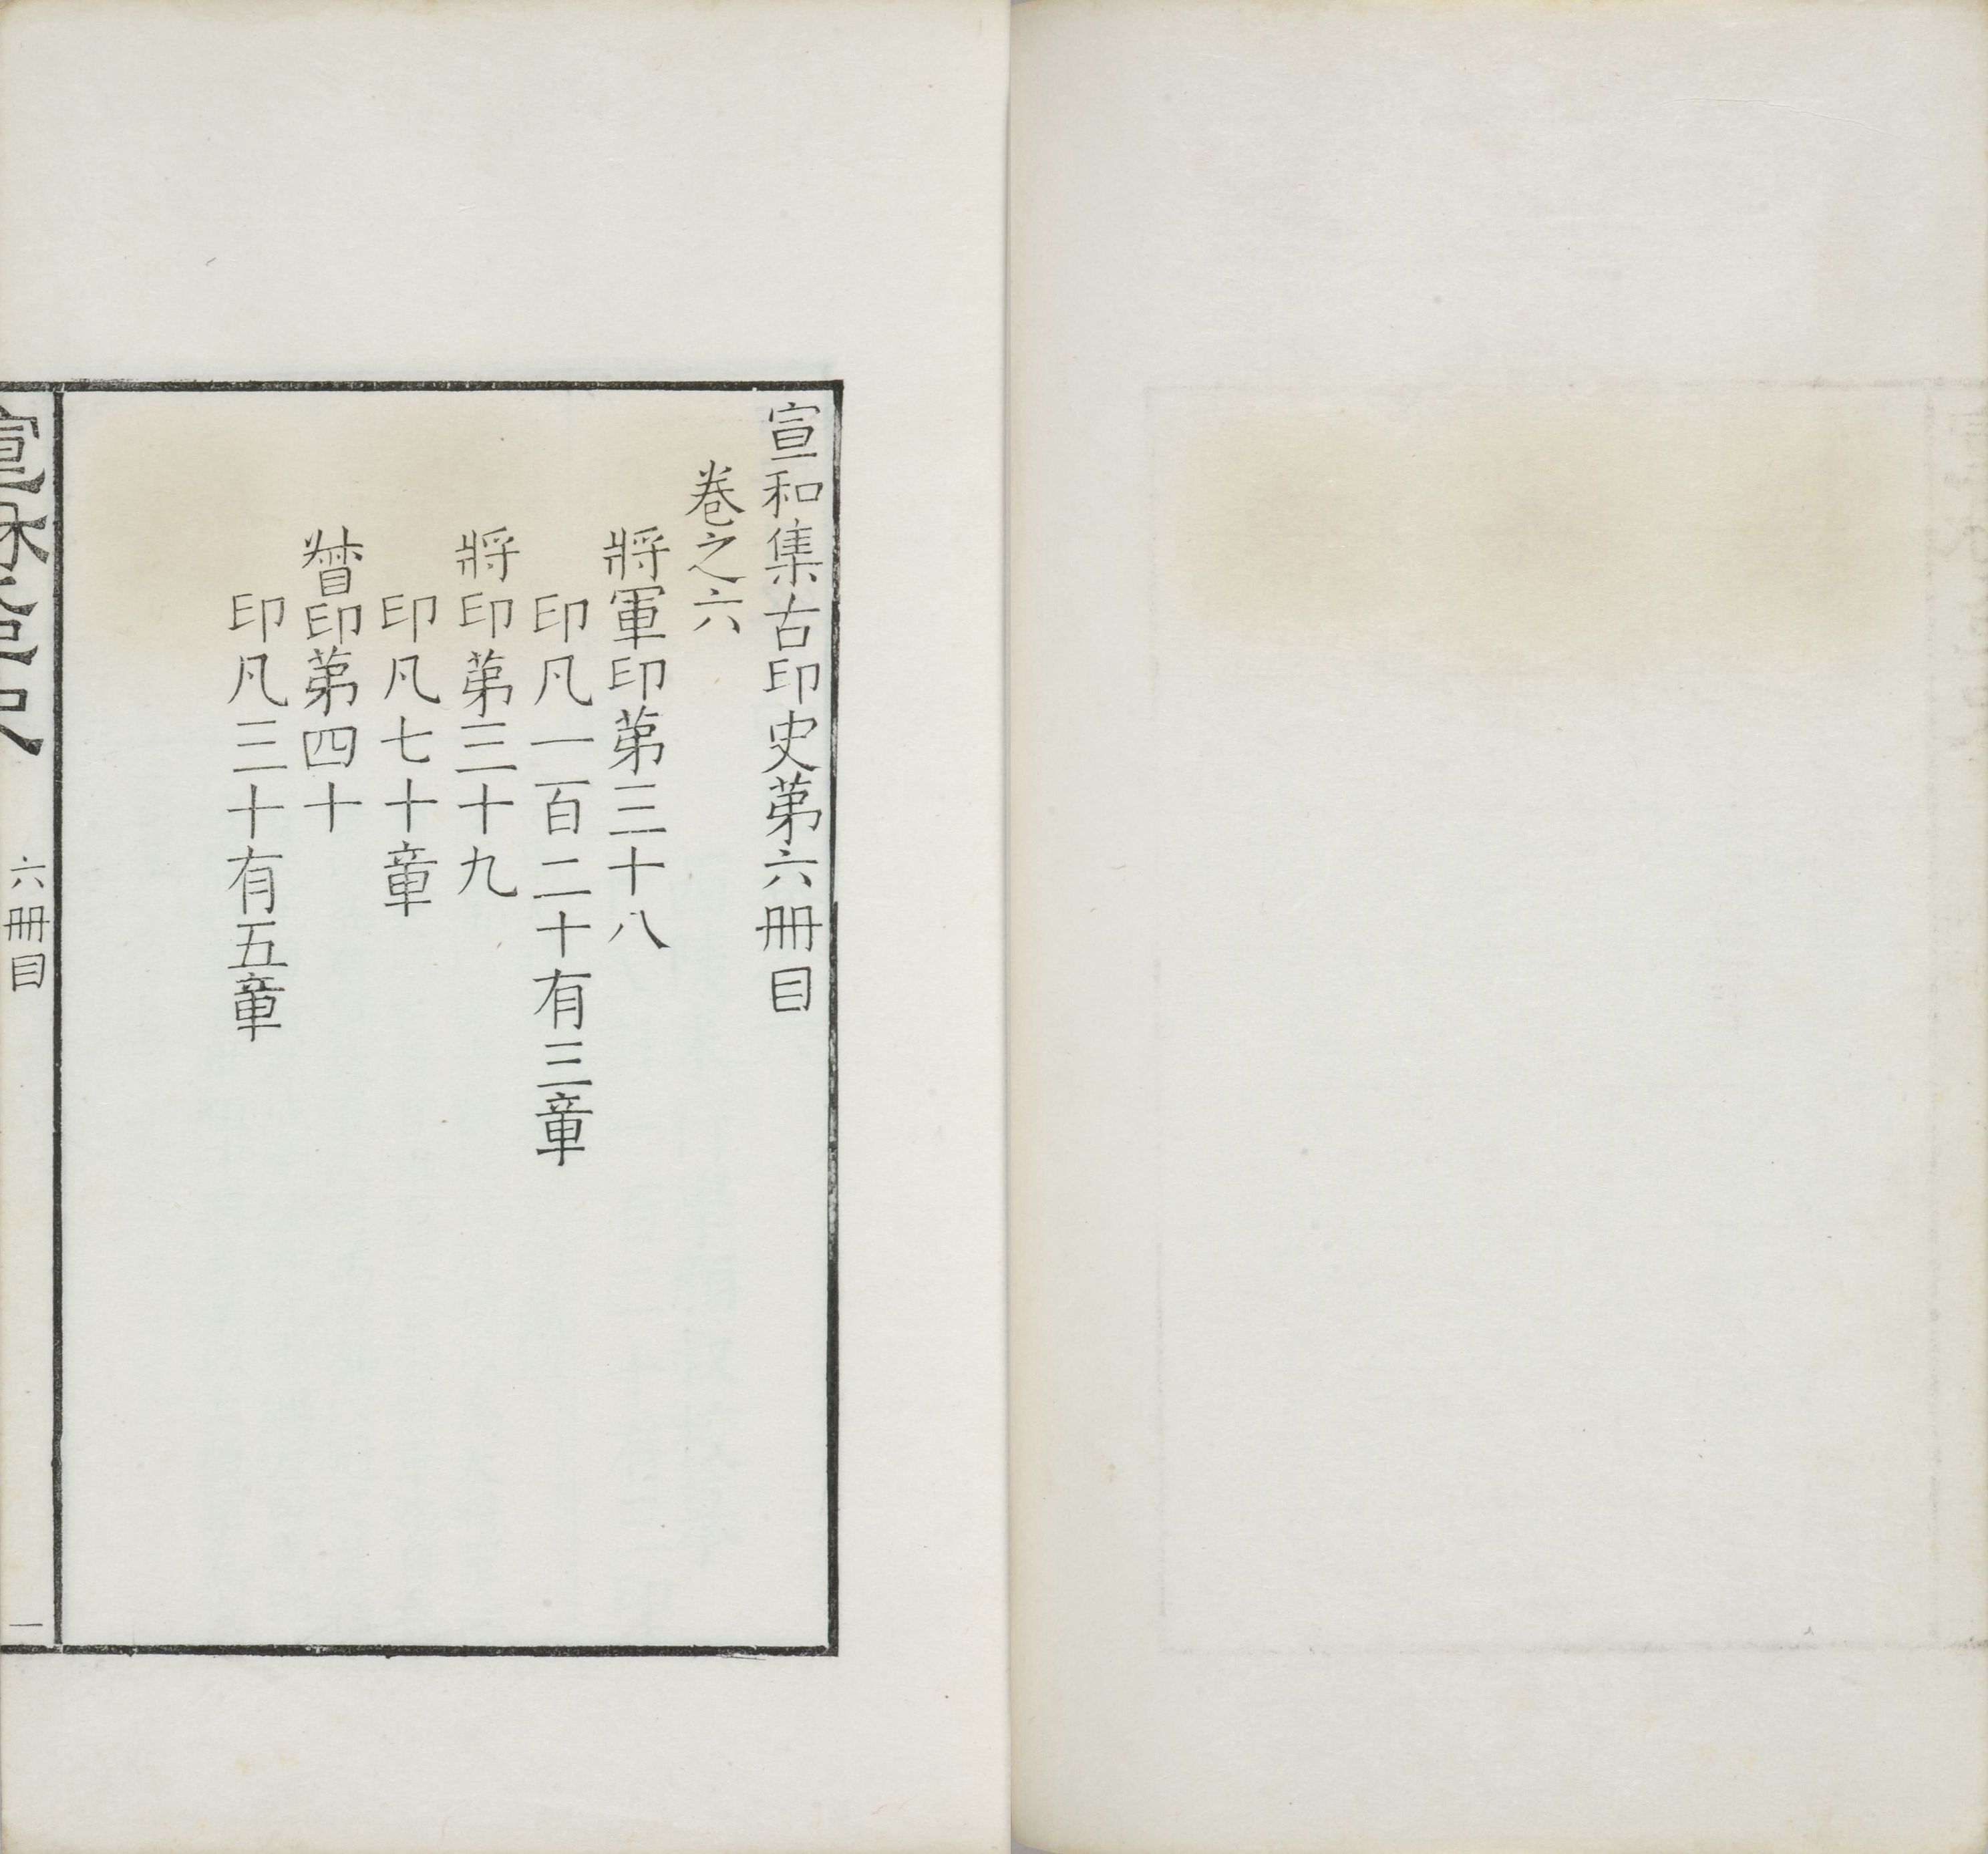 宣和集古印史苐六冊目
卷之六
將軍印苐三十八
印凡一百二十有三章
將印苐三十九
印凡七十章
督印苐四十
印凡三十有五章
宣和印史
六冊目
一